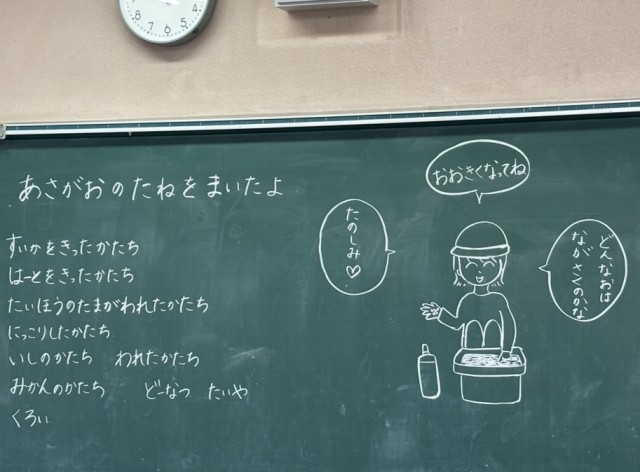 あさがおのたねをまいたよ
すいかをきったかたち
はーとをきったかたち
たいほうのたまがわれたかたち
にっこりしたかたち
いしのかたち　われたかたち
みかんのかたち　どーなつ　たいや
くろい
おおきくなってね
たのしみ♡
どんなおはな
がさくのかな
8 7 6 5 4